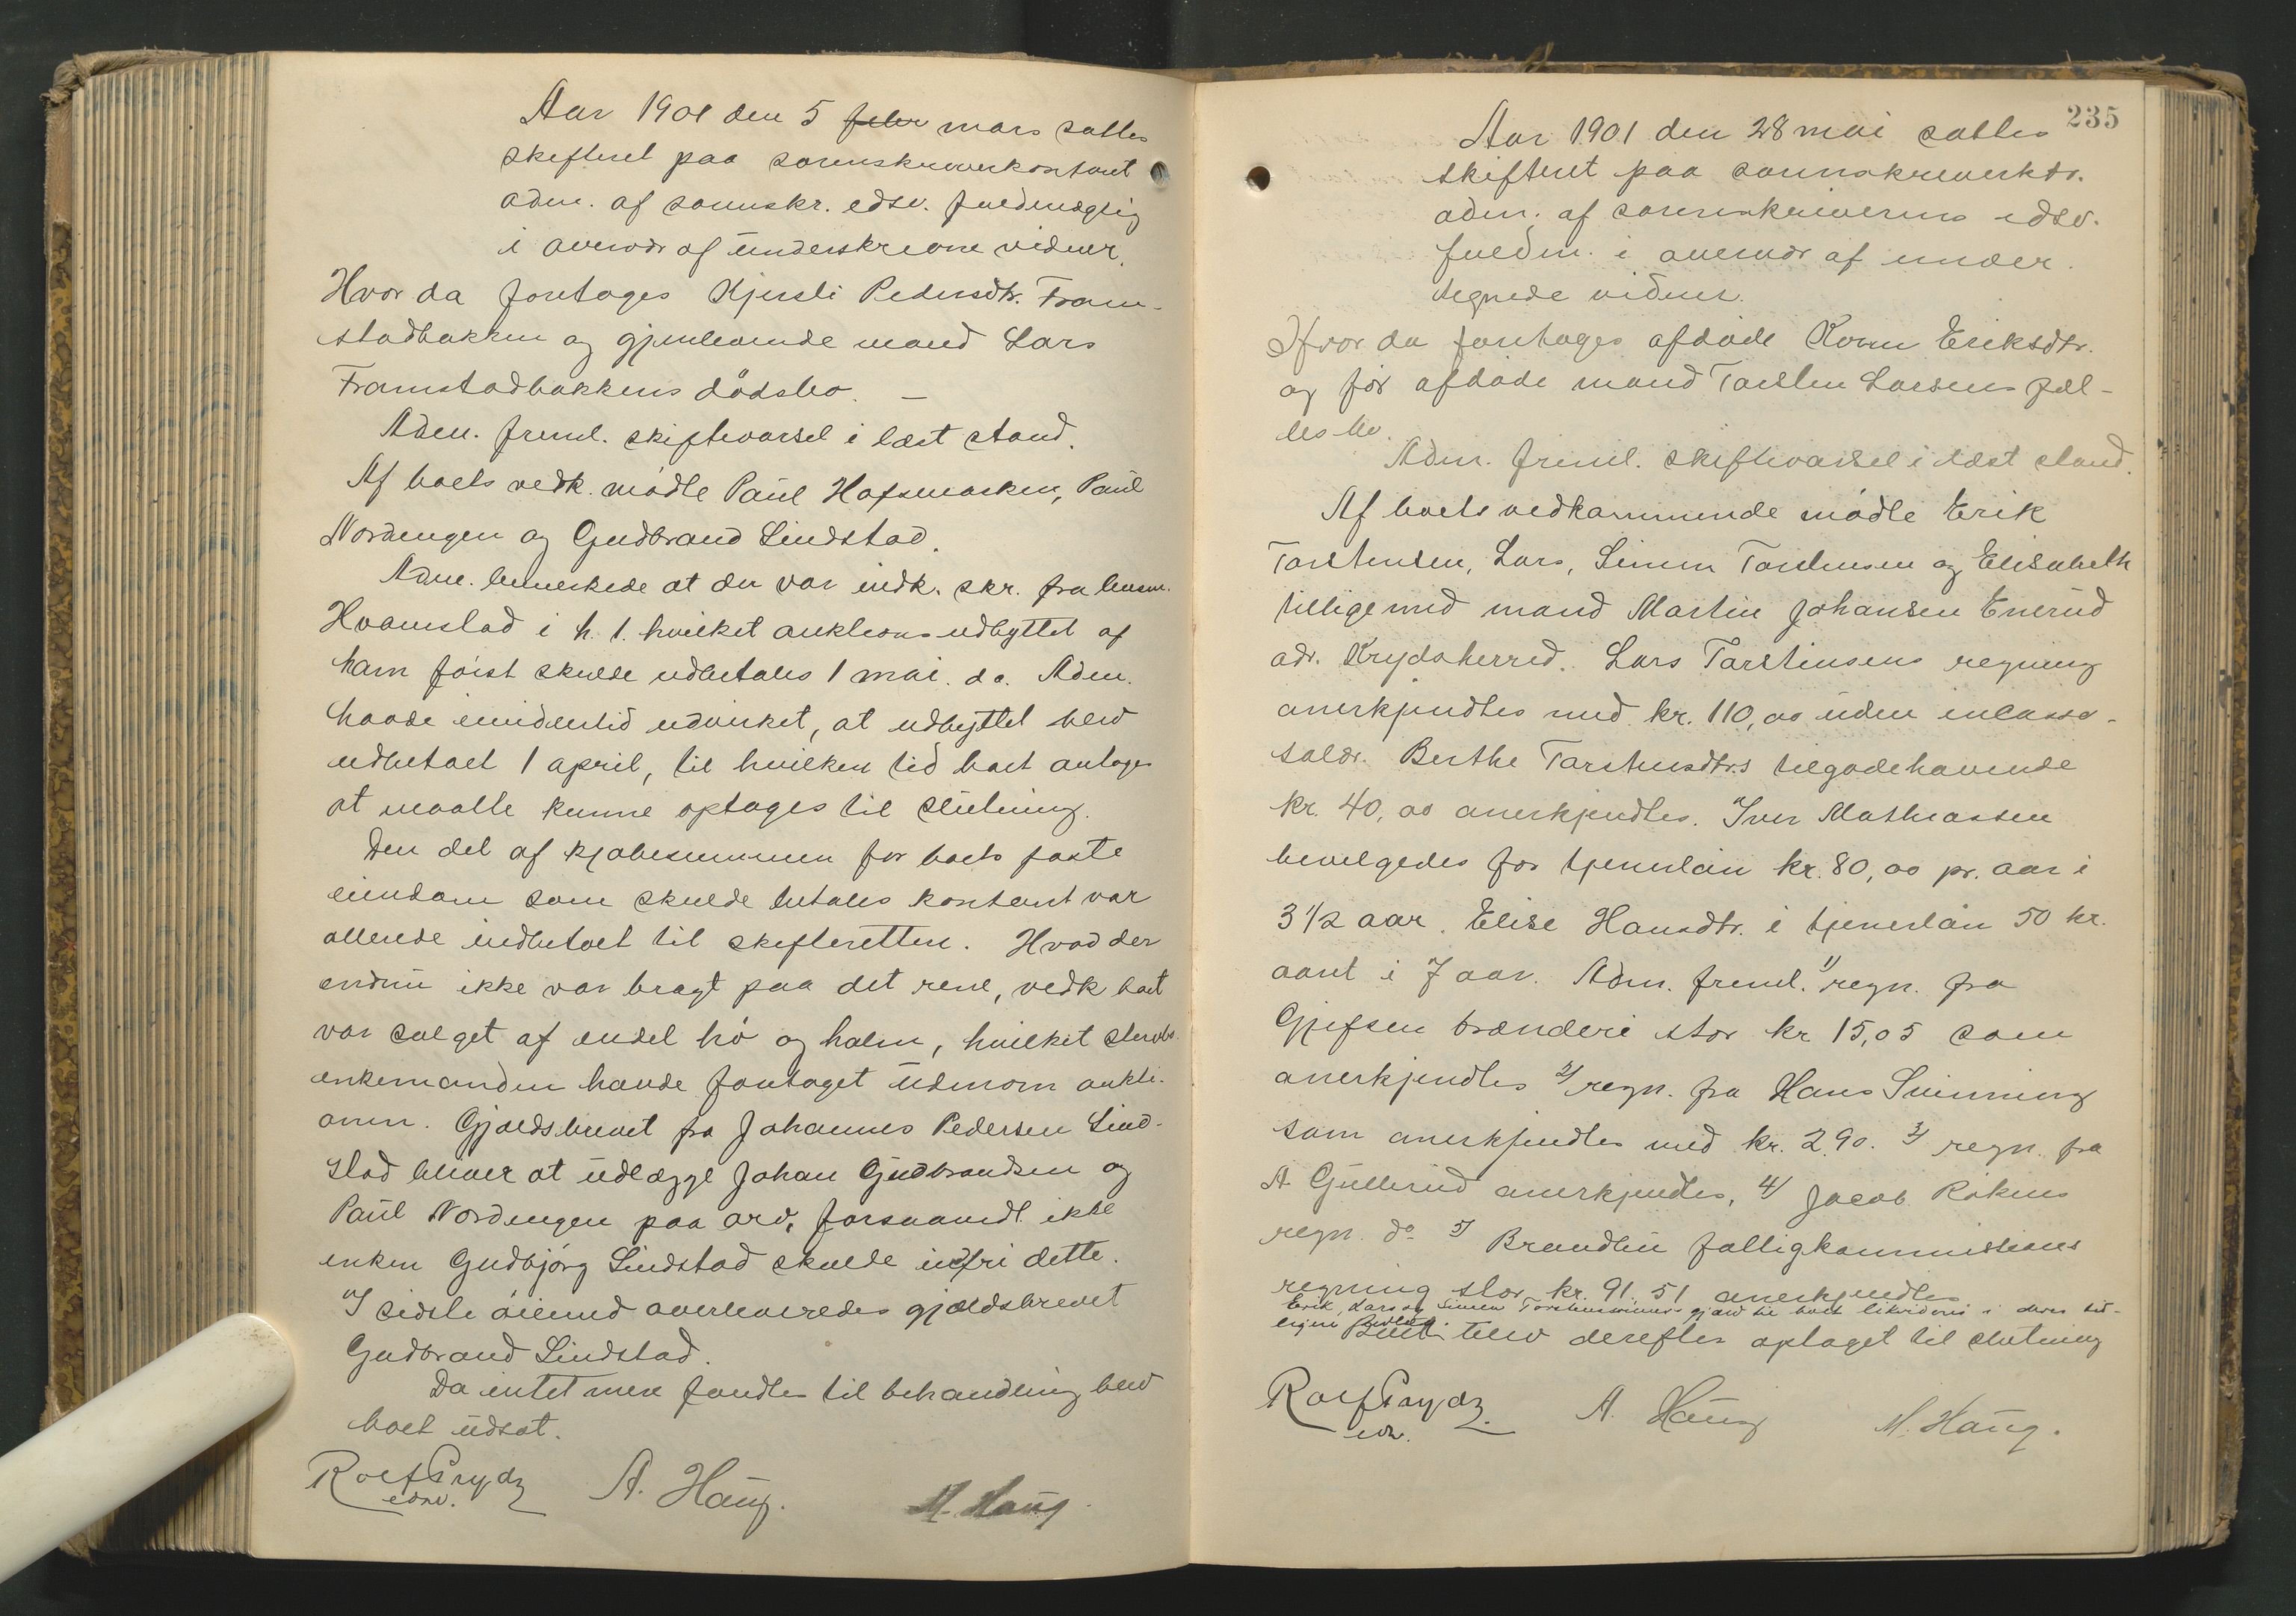 Aar 1901 den 5 febr mars sattes
skifteret paa sorenskriverkontoret
adm. af sorenskr. edsv. fuldmægtig
i overvær af underskrevne vidner.
Hvor da foretoges Kjersti Pedersdtr. Fram-
stadbakken og gjenlevende mand Lars
Framstadbakkens dødsbo. —
Adm. freml. skiftevarsel i læst stand.
Af boets vedk. mødte Paul Hofsmarken, Paul
Nordengen og Gudbrand Lindstad.
Adm. bemerkede at der var indk. skr. fra lensm.
Hvamstad i h. t. hvilket auktionsudbyttet af
ham først skulde udbetales 1 mai. d.a. Adm.
havde imidlertid udvirket, at udbyttet blev
udbetalt 1 april, til hvilken tid boet antoges
at maatte kunne optages til slutning.
Den del af kjøbesummen for boets faste
eiendom som skulde betales kontant var
allerede indbetalt til skifteretten. Hvad der
endnu ikke var bragt paa det rene, vedk boet
var salget af endel hø og halm, hvilket stervbo-
enkemanden havde foretaget udenom aukti-
onen. Gjældsbrevet fra Johannes Pedersen Lind-
stad bliver at udlægge Johan Gudbrandsen og
Paul Nordengen paa arv, forsaavidt ikke
enken Gudbjørg Lindstad skulde indfri dette.
I sidste øiemed overleveredes gjældsbrevet
Gudbrand Lindstad.
Da intet mere fandtes til behandling blev
boet udsat.
Rolf Prydz
edsv.
A. Haug.
M. Haug.
235
Aar 1901 den 28 mai sattes
skifteret paa sorenskriverktr.
adm. af sorenskriverens edsv.
fuldm. i overvær af under-
tegnede vidner.
Hvor da foretoges afdøde Karen Eriksdtr.
og før afdøde mand Torsten Larsens fæl-
lesbo.
Adm. freml. skiftevarsel i læst stand.
Af boets vedkommende mødte Erik
Torstensen, Lars, Simen Torstensen og Elisabeth
tilligemed mand Martin Johansen Enerud
adr. Krydsherred. Lars Torstensens regning
anerkjendtes med kr. 110,00 uden incasso-
salær. Berthe Torstensdtrs tilgodehavende
kr. 40,00 anerkjendtes. Iver Mathiassen
bevilgedes for tjenerløn kr. 80,00 pr. aar i
3 1/2 aar. Elise Hansdtr. i tjenerløn 50 kr.
aaret i 7 aar. Adm. freml. 1/ regn. fra
Gjefsen brænderi stor kr 15,05 som
anerkjendtes 2/ regn. fra Hans Svinning
som anerkjendtes med kr. 2.90. 3/ regn. fra
A Gullerud anerkjendtes, 4/ Jacob Røkens
regn. do 5/ Brandbu fattigkommissions
regning stor kr. 91.51 anerkjendtes
Erik, Lars og Simen Torstensønners gjæld til boet likvideres i deres tid-
ligere
Boet blev derefter optaget til slutning
Rolf Prydz.
edsv.
A. Haug
M. Haug.